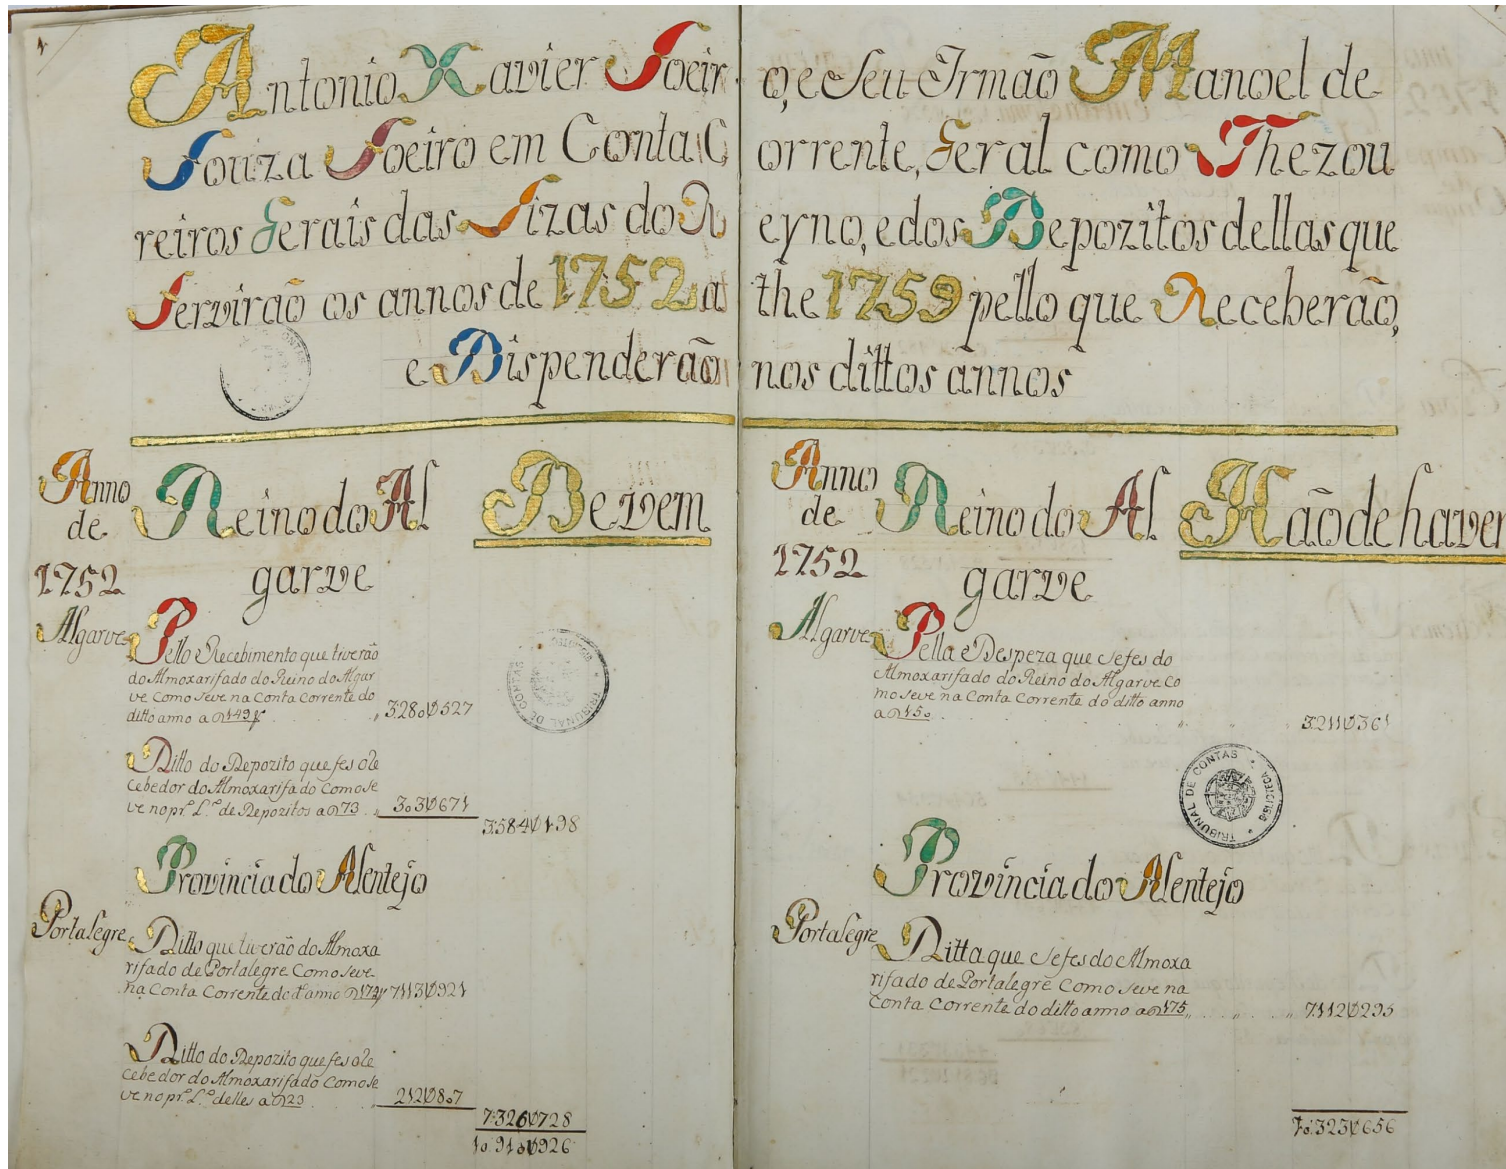 1
Antonio Xavier Soeiro, e Seu Irmão Manoel de
Souza Soeiro em Conta Corrente, Geral como Thezou
reiros Gerais das Sizas do Reyno, e dos Depozitos dellas que
Servirão os annos de 1752 athe 1759 pello que Receberão,
e Dispenderão nos dittos annos
Anno de 1752
Reino do Al
garve
Devem
Algarve
Pello Recebimento que tiverão
do Almoxarifado do Reino do Algar
ve Como seve na Conta Corrente do
ditto anno a 149 3280$527
Ditto do Depozito que fes o Re
cebedor do Almoxarifado Como se
ve no pr.º L.º de Depozitos a 73 303$671
3584$198
TRIBUNAL DE CONTAS
Provincia do Alentejo
Portalegre
Ditto que tiverão do Almoxa
rifado de Portalegre Como seve
na Conta Corrente do d.º anno a 174 7113$921
Ditto do Depozito que fes o Re
cebedor do Almoxarifado Como se
ve no pr.º L.º delles a 23 212$807
7:326$728
10:910$926
Anno de 1752
Reino do Al
garve
Hão de haver
Algarve
Pella Despeza que sefes do
Almoxarifado do Reino do Algarve Co
mo seve na Conta Corrente do ditto anno
a 150 3211$361
TRIBUNAL DE CONTAS BIBLIOTECA
Provincia do Alentejo
Portalegre
Ditta que sefes do Almoxa
rifado de Portalegre Como seve na
Conta Corrente do ditto anno a 175 7112$295
10:323$656